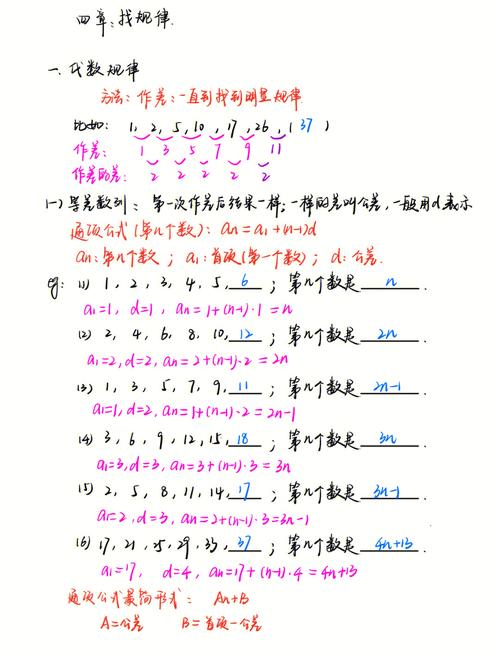 四章:找规律.
一、代数规律
方法:作差:一直到找到明显规律
比如: 1, 2, 5, 10, 17, 26, ( 37 )
作差: 1 3 5 7 9 11
作差的差: 2 2 2 2 2
(一) 等差数列: 第一次作差后结果一样;一样的差叫公差,一般用d表示
通项公式(第n个数): an=a1+(n-1)d
an:第n个数; a1:首项(第一个数); d:公差.
eg: (1) 1, 2, 3, 4, 5, 6 ; 第n个数是 n .
a1=1, d=1, an=1+(n-1)·1=n
(2) 2, 4, 6, 8, 10, 12 ; 第n个数是 2n .
a1=2, d=2, an=2+(n-1)·2=2n
(3) 1, 3, 5, 7, 9, 11 ; 第n个数是 2n-1 .
a1=1, d=2, an=1+(n-1)·2=2n-1
(4) 3, 6, 9, 12, 15, 18 ; 第n个数是 3n .
a1=3, d=3, an=3+(n-1)·3=3n
(5) 2, 5, 8, 11, 14, 17 ; 第n个数是 3n-1 .
a1=2, d=3, an=2+(n-1)·3=3n-1
(6) 17, 21, 25, 29, 33, 37 ; 第n个数是 4n+13 .
a1=17, d=4, an=17+(n-1)·4=4n+13
通项公式最简形式: An+B
A=公差 B=首项-公差